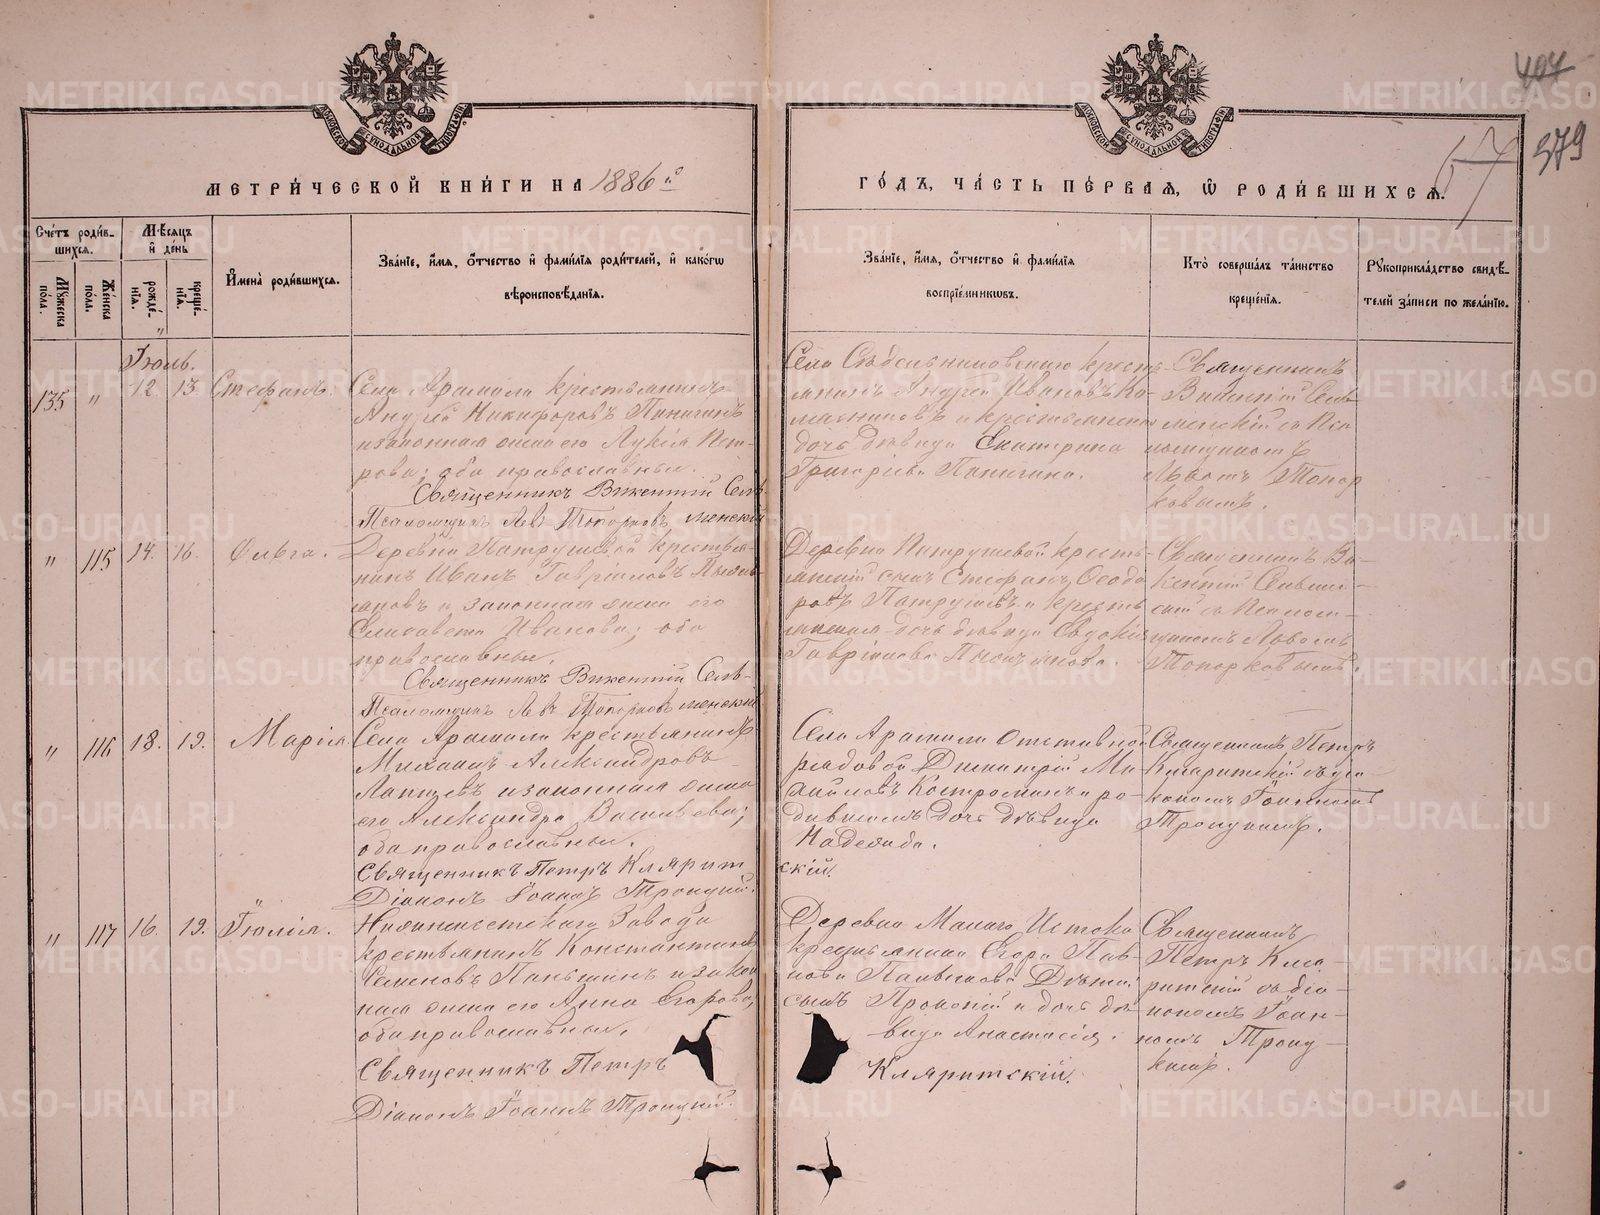 407
379
57
МОСКОВСКОЙ СѴНОДАЛЬНОЙ ТИПОГРАФІИ
МОСКОВСКОЙ СѴНОДАЛЬНОЙ ТИПОГРАФІИ
МЕТРИ́ЧЕСКОЙ КНИ́ГИ НА 1886й
ГО́ДЪ, ЧА́СТЬ ПЕ́РВАѦ, Ѡ РОДИ́ВШИХСѦ.
Сче́тъ роди́в-
шихсѧ.
Мꙋ́жеска по́ла.
Же́нска по́ла.
Мѣ́сѧцъ
и де́нь
рожде́-
нїѧ.
креще́-
нїѧ.
Имена̀ роди́вшихсѧ.
Зва́нїе, и́мѧ, о́тчество и фами́лїѧ роди́телей, и како́гѡ
вѣроисповѣ́данїѧ.
Зва́нїе, и́мѧ, о́тчество и фами́лїѧ
воспрїе́мникѡвъ.
Кто̀ соверша́лъ та́инство
креще́нїѧ.
Рꙋкоприкла́дство свидѣ́-
телей за́писи по жела́нїю.
Іюль.
135 " 12 13 Стефанъ.
Села Арамили крестьянинъ
Андрей Никифоровъ Пиничинъ
и законная жена его Лукія Пет-
рова; оба православные.
Священникъ Викентій Селъ-
Псаломщикъ Левъ Топорковъ менскій
крестья-
нинъ Андрей Ивановъ
и крестьянская
дочь дѣвица Екатерина
Григоріева Пиничина.
Священникъ
съ Пса
ломщикомъ
Львомъ Топор
ковымъ.
" 115 14. 16. Ольга.
Деревни Патрушевой крестья-
нинъ Иванъ Гавріиловъ
и законная жена его
Елисавета Иванова; оба
православные.
Священникъ Викентій Селъ-
Псаломщикъ Левъ Топорковъ менскій
Деревни Патрушевой кресть-
янскій сынъ Стефанъ Ѳеодо
ровъ Патрушевъ и кресть
янская дочь дѣвица Евдокія
Гавріилова
Священникъ Ви-
кентій
съ Псалом-
щикомъ Львомъ
Топорковымъ.
" 116 18. 19. Марія
Села Арамили крестьянинъ
Михаилъ Александровъ
Лаптевъ и законная жена
его Александра Васильева;
оба православные.
Священникъ Петръ Кляритскій
Діаконъ Іоаннъ Троицкій.
Села Арамили Отставной
рядовой Димитрій Ми
хайловъ Костроминъ и
дочь дѣвица
Надежда.
скій.
Священникъ Петръ
Кляритскій съ діа-
кономъ Іоанномъ
Троицкимъ.
" 117 16. 19. Іюлія.
Нижнеисетскаго Завода
крестьянинъ Константинъ
Семеновъ Паньшинъ и закон
ная жена его Анна Егорова;
оба православные.
Священникъ Петръ
Діаконъ Іоаннъ Троицкій.
Деревни Малаго Истока
крестьянина Егора Пав-
лова дѣти:
сынъ Прокопій и дочь дѣ-
вица Анастасія.
Кляритскій.
Священникъ
Петръ Кля-
ритскій съ діа-
кономъ Іоан-
номъ Троиц-
кимъ.
METRIKI.GASO-URAL.RU